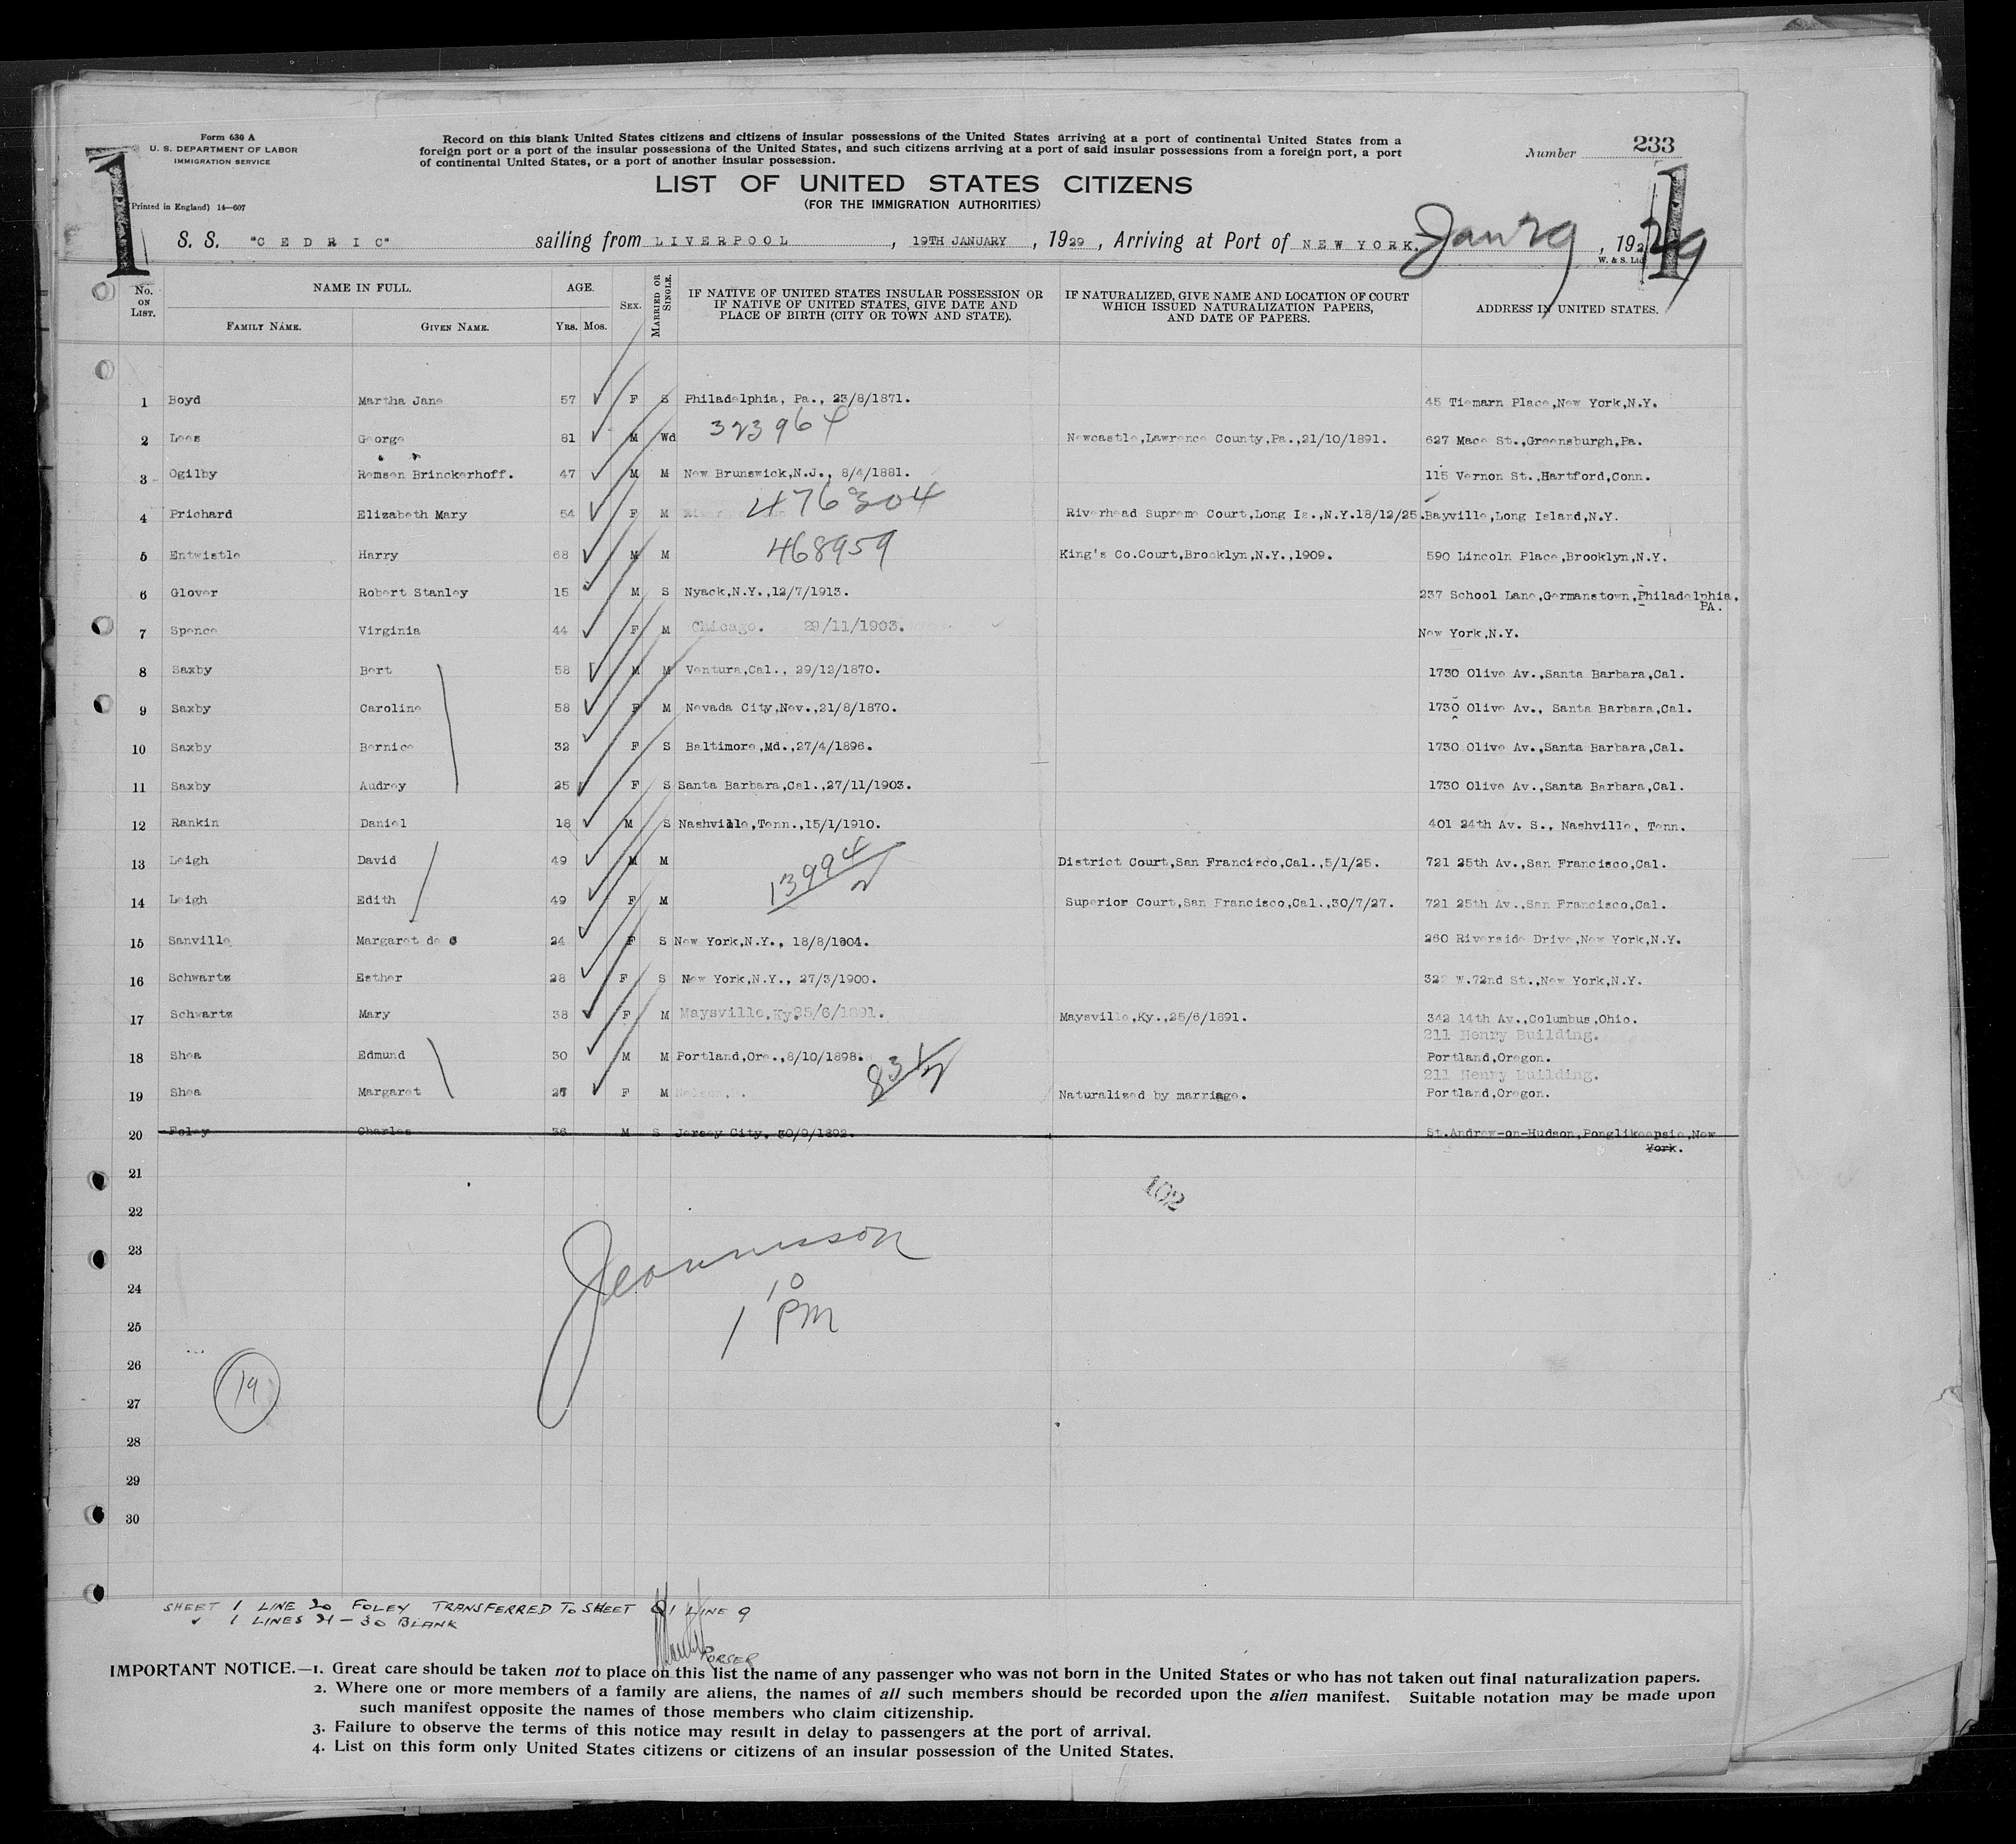 Form 630 A
U. S. DEPARTMENT OF LABOR
IMMIGRATION SERVICE
(Printed in England) 14—607
1
Record on this blank United States citizens and citizens of insular possessions of the United States arriving at a port of continental United States from a
foreign port or a port of the insular possessions of the United States, and such citizens arriving at a port of said insular possessions from a foreign port, a port
of continental United States, or a port of another insular possession.
Number 233
1
LIST OF UNITED STATES CITIZENS
(FOR THE IMMIGRATION AUTHORITIES)
S. S. "CEDRIC" sailing from LIVERPOOL, 19TH JANUARY, 1929, Arriving at Port of NEW YORK. Jan 29, 1929
W. & S. Ltd
No. ON LIST. NAME IN FULL. FAMILY NAME. GIVEN NAME. AGE. YRS. MOS. SEX. MARRIED OR SINGLE. IF NATIVE OF UNITED STATES INSULAR POSSESSION OR IF NATIVE OF UNITED STATES, GIVE DATE AND PLACE OF BIRTH (CITY OR TOWN AND STATE). IF NATURALIZED, GIVE NAME AND LOCATION OF COURT WHICH ISSUED NATURALIZATION PAPERS, AND DATE OF PAPERS. ADDRESS IN UNITED STATES.
1 Boyd Martha Jane 57 F S Philadelphia, Pa., 23/8/1871. 45 Tiemarn Place,New York,N.Y.
2 Lees George 81 M Wd 323964 Newcastle,Lawrence County,Pa.,21/10/1891. 627 Mace St.,Greensburgh,Pa.
3 Ogilby Remsen Brinckerhoff. 47 M M New Brunswick,N.J., 8/4/1881. 115 Vernon St.,Hartford,Conn.
4 Prichard Elizabeth Mary 54 F M 476304 Riverhead Supreme Court,Long Is.,N.Y.18/12/25. Bayville,Long Island,N.Y.
5 Entwistle Harry 68 M M 468959 King's Co.Court,Brooklyn,N.Y.,1909. 590 Lincoln Place,Brooklyn,N.Y.
6 Glover Robert Stanley 15 M S Nyack,N.Y.,12/7/1913. 237 School Lane,Germanstown,Philadelphia,
PA.
7 Spence Virginia 44 F M Chicago. 29/11/1903. New York,N.Y.
8 Saxby Bert 58 M M Ventura,Cal., 29/12/1870. 1730 Olive Av.,Santa Barbara,Cal.
9 Saxby Caroline 58 F M Nevada City,Nev.,21/8/1870. 1730 Olive Av., Santa Barbara,Cal.
10 Saxby Bernice 32 F S Baltimore,Md.,27/4/1896. 1730 Olive Av.,Santa Barbara,Cal.
11 Saxby Audrey 25 F S Santa Barbara,Cal.,27/11/1903. 1730 Olive Av.,Santa Barbara,Cal.
12 Rankin Daniel 18 M S Nashville,Tenn.,15/1/1910. 401 24th Av. S., Nashville, Tenn.
13 Leigh David 49 M M 13994/2 District Court,San Francisco,Cal.,5/1/25. 721 25th Av.,San Francisco,Cal.
14 Leigh Edith 49 F M Superior Court,San Francisco,Cal.,30/7/27. 721 25th Av.,San Francisco,Cal.
15 Sanville Margaret de 24 F S New York,N.Y., 18/8/1904. 260 Riverside Drive,New York,N.Y.
16 Schwartz Esther 28 F S New York,N.Y., 27/3/1900. 322 W.72nd St.,New York,N.Y.
17 Schwartz Mary 38 F M Maysville,Ky.25/6/1891. Maysville,Ky.,25/6/1891. 342 14th Av.,Columbus,Ohio.
211 Henry Building.
18 Shea Edmund 30 M M Portland,Ore.,8/10/1898. Portland,Oregon.
211 Henry Building.
19 Shea Margaret F M Naturalized by marriage. Portland,Oregon.
20 Foley Charles 36 M S Jersey City, 30/9/1892. St.Andrew-on-Hudson,Ponglikeepsie,New
York.
21
102
22
23
24
10
1 PM
25
26
19
27
28
29
30
SHEET 1 LINE 20 FOLEY TRANSFERRED TO SHEET LINE 9
1 LINES 21 - 30 BLANK
PURSER
IMPORTANT NOTICE.—1. Great care should be taken not to place on this list the name of any passenger who was not born in the United States or who has not taken out final naturalization papers.
2. Where one or more members of a family are aliens, the names of all such members should be recorded upon the alien manifest. Suitable notation may be made upon
such manifest opposite the names of those members who claim citizenship.
3. Failure to observe the terms of this notice may result in delay to passengers at the port of arrival.
4. List on this form only United States citizens or citizens of an insular possession of the United States.